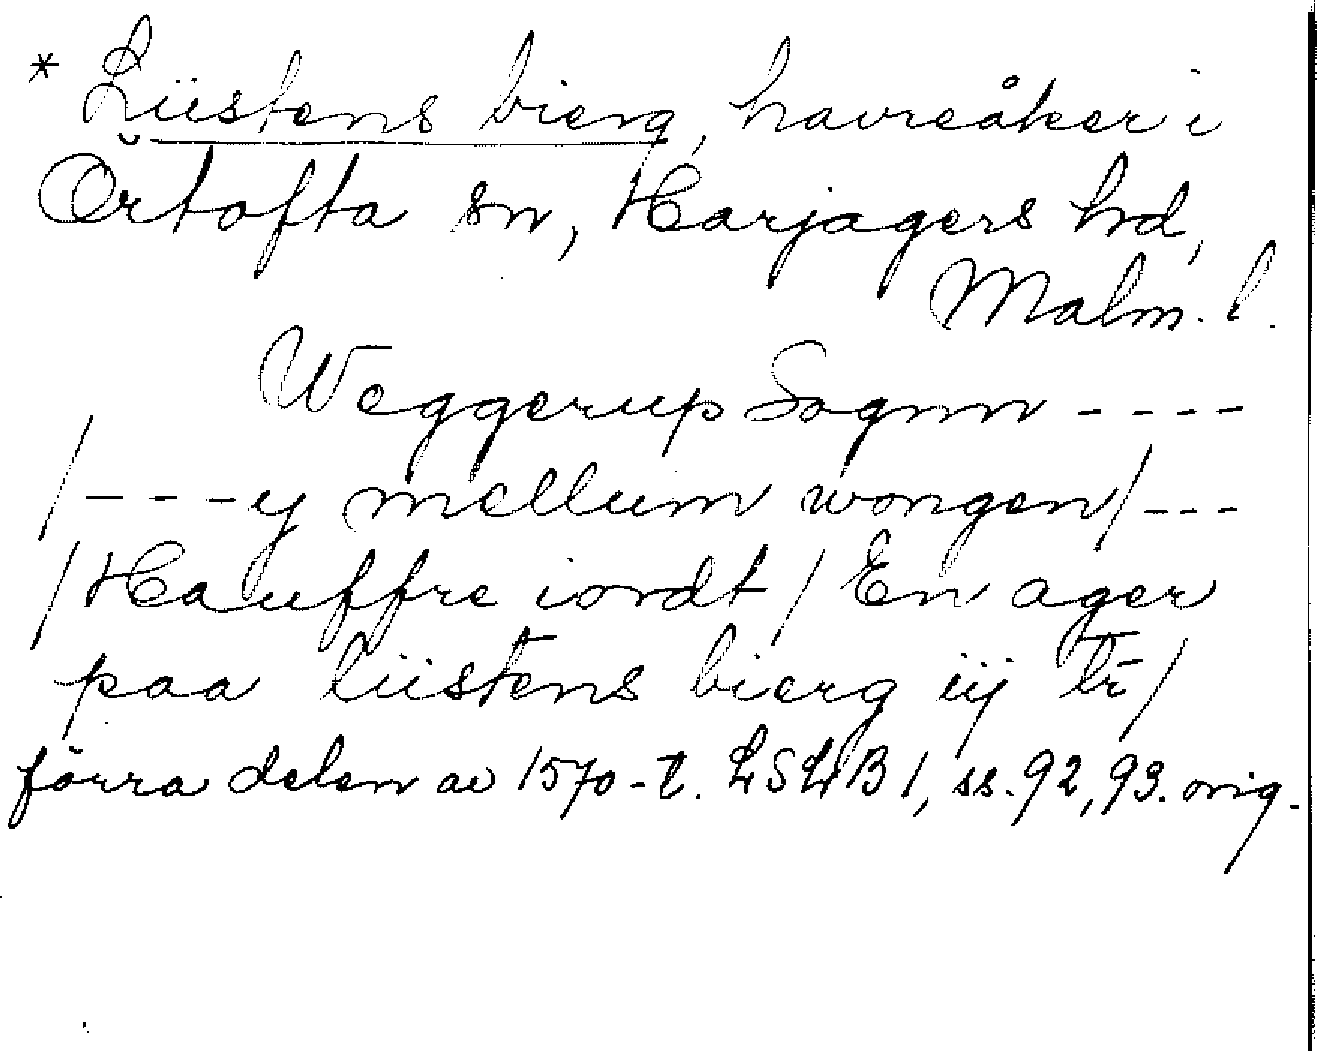 * Lüstens bierg, havreåker i
Örtofta sn, Harjagers hd,
Malm. l.
Weggerup Sognn ----
/---y mellum wongen/---
/Hauffre iordt/ En ager
paa lüstens bierg iij
förra delen av 1570-t. LSLB 1, ss. 92, 93. orig.